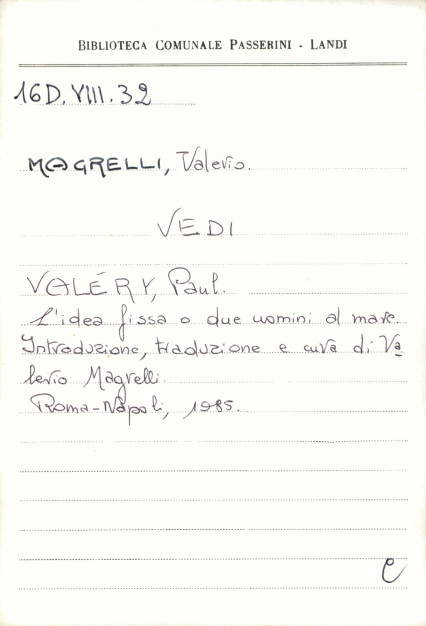 BIBLIOTECA COMUNALE PASSERINI - LANDI
16D.VIII.32
MAGRELLI, Valerio.
VEDI
VALÉRY, Paul.
L'idea fissa o due uomini al mare.
Introduzione, traduzione e cura di Va
lerio Magrelli.
Roma-Napoli, 1985.
C